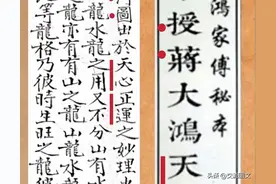 鴻家傳秘本
授蔣大鴻天
圖出於天心正運之妙理
龍水龍之用又不分山有水
龍亦有有山之龍山龍水龍
等龍格乃彼時生旺之龍彼
头条